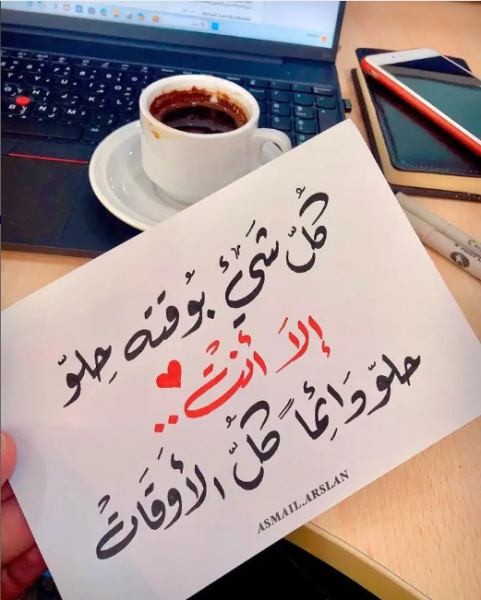 كُلّ شَيْءٍ بوُقته حِلوّ
إلاَ أنتْ..
حلوّ دَائِماً كلُّ الأوَقَاتْ
ASMAIL.ARSLAN